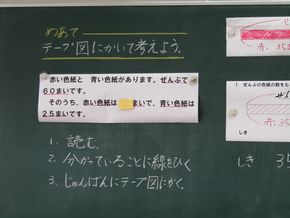 めあて
テープ図にかいて考えよう。
赤い色紙と 青い色紙があります。ぜんぶで
60まいです。
そのうち、赤い色紙は まいで、青い色紙は
25まいです。
1. 読む。
2. 分かっていることに線をひく
3. じゅんばんにテープ図にかく。
赤 35
1 ぜんぶの色紙の数をも
ぜん
赤 35
しき 35